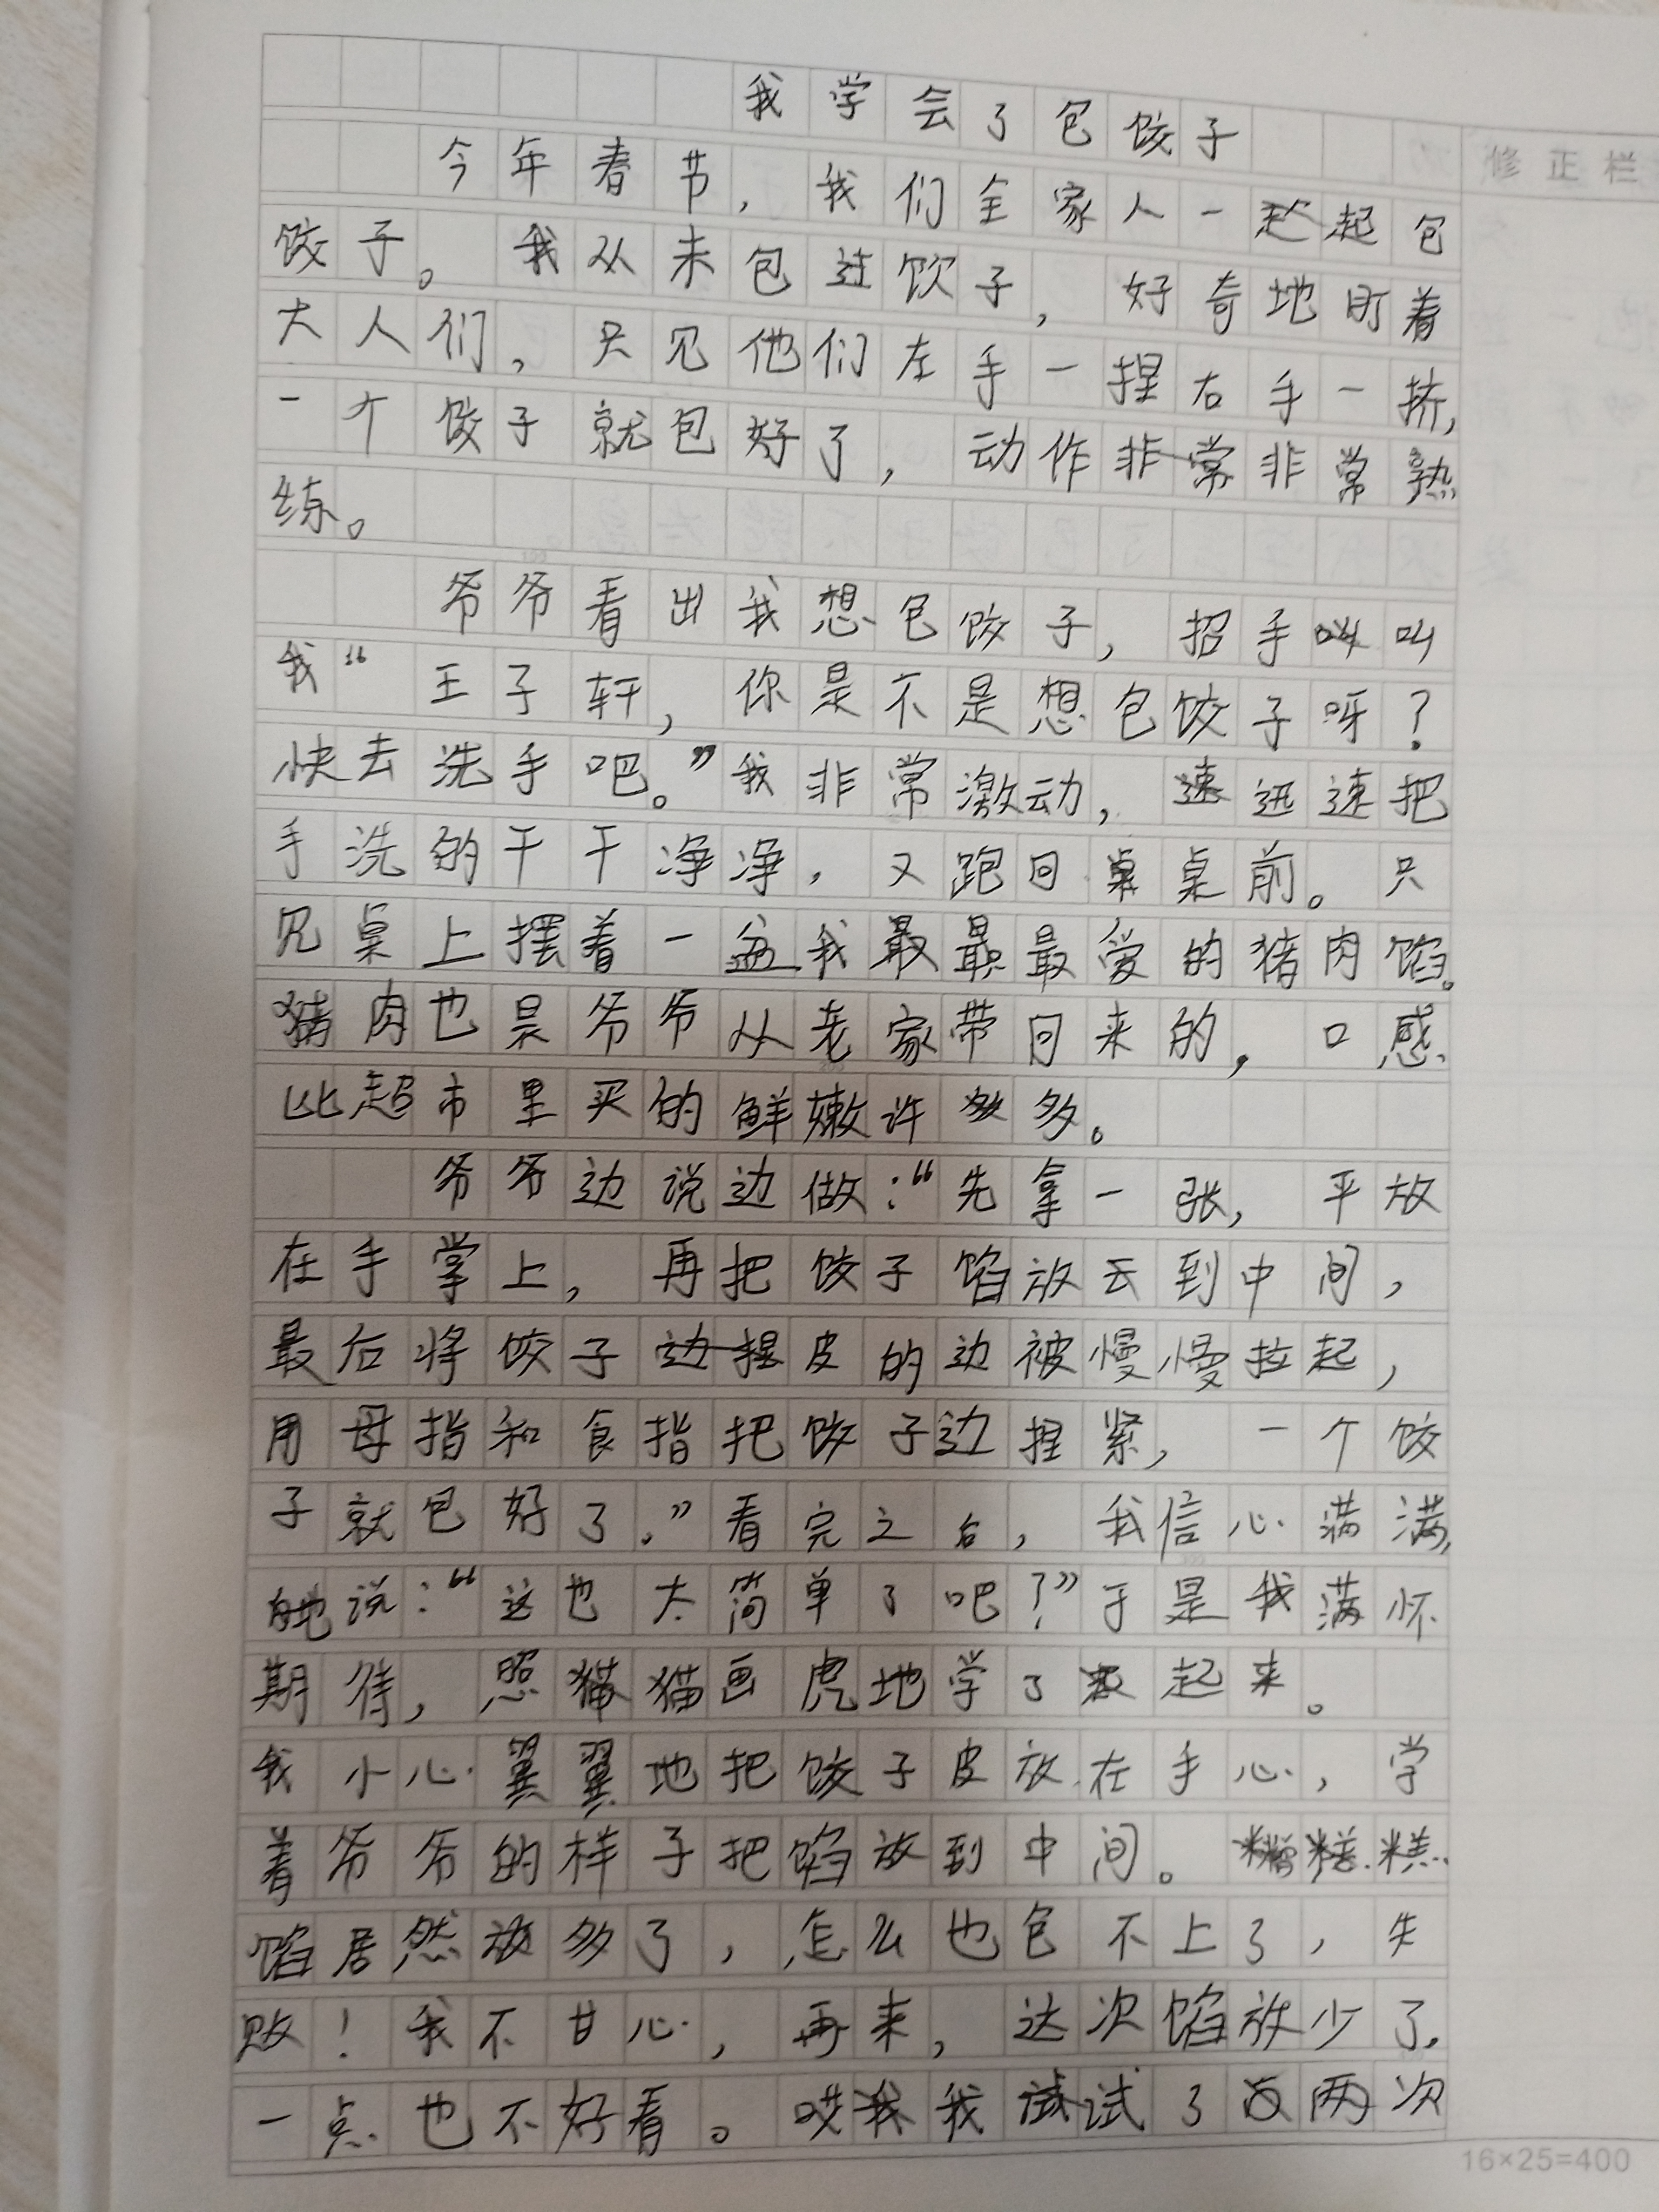 我学会了包饺子
修正栏
今年春节，我们全家人一起包
饺子。我从未包过饮子，好奇地盯着
大人们，只见他们左手一捏右手一挤，
一个饺子就包好了，动作非常非常熟
练。
爷爷看出我想包饺子，招手叫
我“王子轩，你是不是想包饺子呀？
快去洗手吧。”我非常激动，迅速把
手洗的干干净净，又跑回桌前。只
见桌上摆着一盆我最最爱的猪肉馅。
猪肉也是爷爷从老家带回来的，口感
比超市里买的鲜嫩许多。
爷爷边说边做：“先拿一张，平放
在手掌上，再把饺子馅放去到中间，
最后将饺子皮的边被慢慢拉起，
用母指和食指把饺子边捏紧，一个饺
子就包好了。”看完之后，我信心满满，
地说：“这也太简单了吧！”于是我满怀
期待，照猫画虎地学了起来。
我小心翼翼地把饺子皮放在手心，学
着爷爷的样子把馅放到中间。糟糕
馅居然放多了，怎么也包不上了，失
败！我不甘心，再来，这次馅放少了，
一点也不好看。哎我试了两次
16×25=400